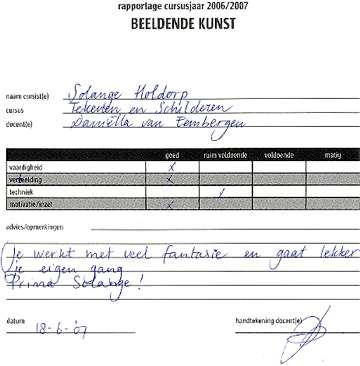 rapportage cursusjaar 2006/2007
BEELDENDE KUNST
naam cursist(e) Solange Holdorp
cursus Tekenen en Schilderen
docent(e) Daniëlla van Eembergen
goed ruim voldoende voldoende matig
vaardigheid x
verbeelding x
techniek x
motivatie/inzet x
advies/opmerkingen
Je werkt met veel fantasie en gaat lekker
je eigen gang
Prima Solange!
datum 18-6-'07 handtekening docent(e)